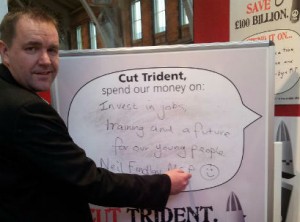 SAVE
£100 BILLION.
Cut Trident,
spend our money on:
Invest in jobs,
training and a future
for our young people
Neil Findlay MSP
CUT TRIDENT.